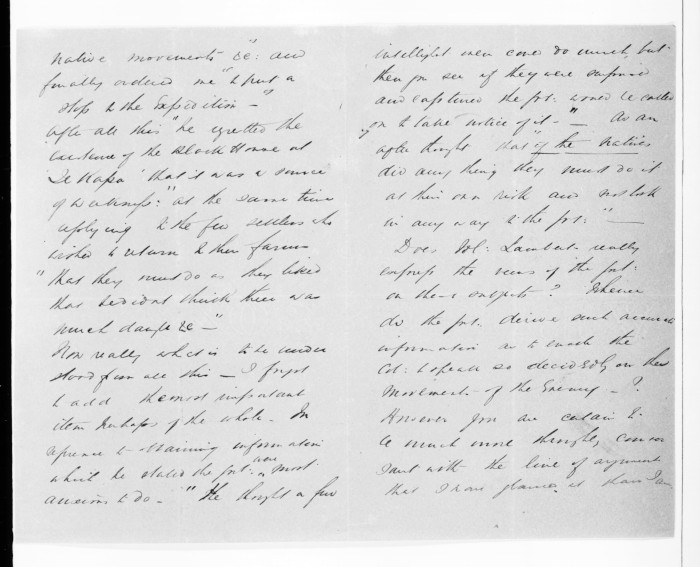 native movements" &c: and
finally ordered me "to put a
stop to the Expedition -"
After all this "he regretted the
existence of the Block House at
Te Kapu" that it was a source
of weakness:" at the same time
replying to the few settlers who
wished to return to their farms
"that they must do as they liked
that he didnt think there was
much danger &c -"
Now really what is to be under
stood from all this - I forgot
to add the most important
item perhaps of the whole. In
reference to obtaining information
which he stated the Govt: were most
anxious to do - "He thought a few
intelligt men could do much, but
then you see if they were surprised
and captured the Govt: would be called
on to take notice of it -" As an
after thought that "if the Natives
did any thing they must do it
at their own risk and not look
in any way to the Govt:" -
Does Col: Lambert really
express the views of the Govt:
on these subjects? Whence
do the Govt. derive such accurate
information as to enable the
Col: to speak so decidedly on the
movements of the Enemy - ?
However you are certain to
be much more thoroughly conver
sant with the line of argument
that I have glanced at than I am